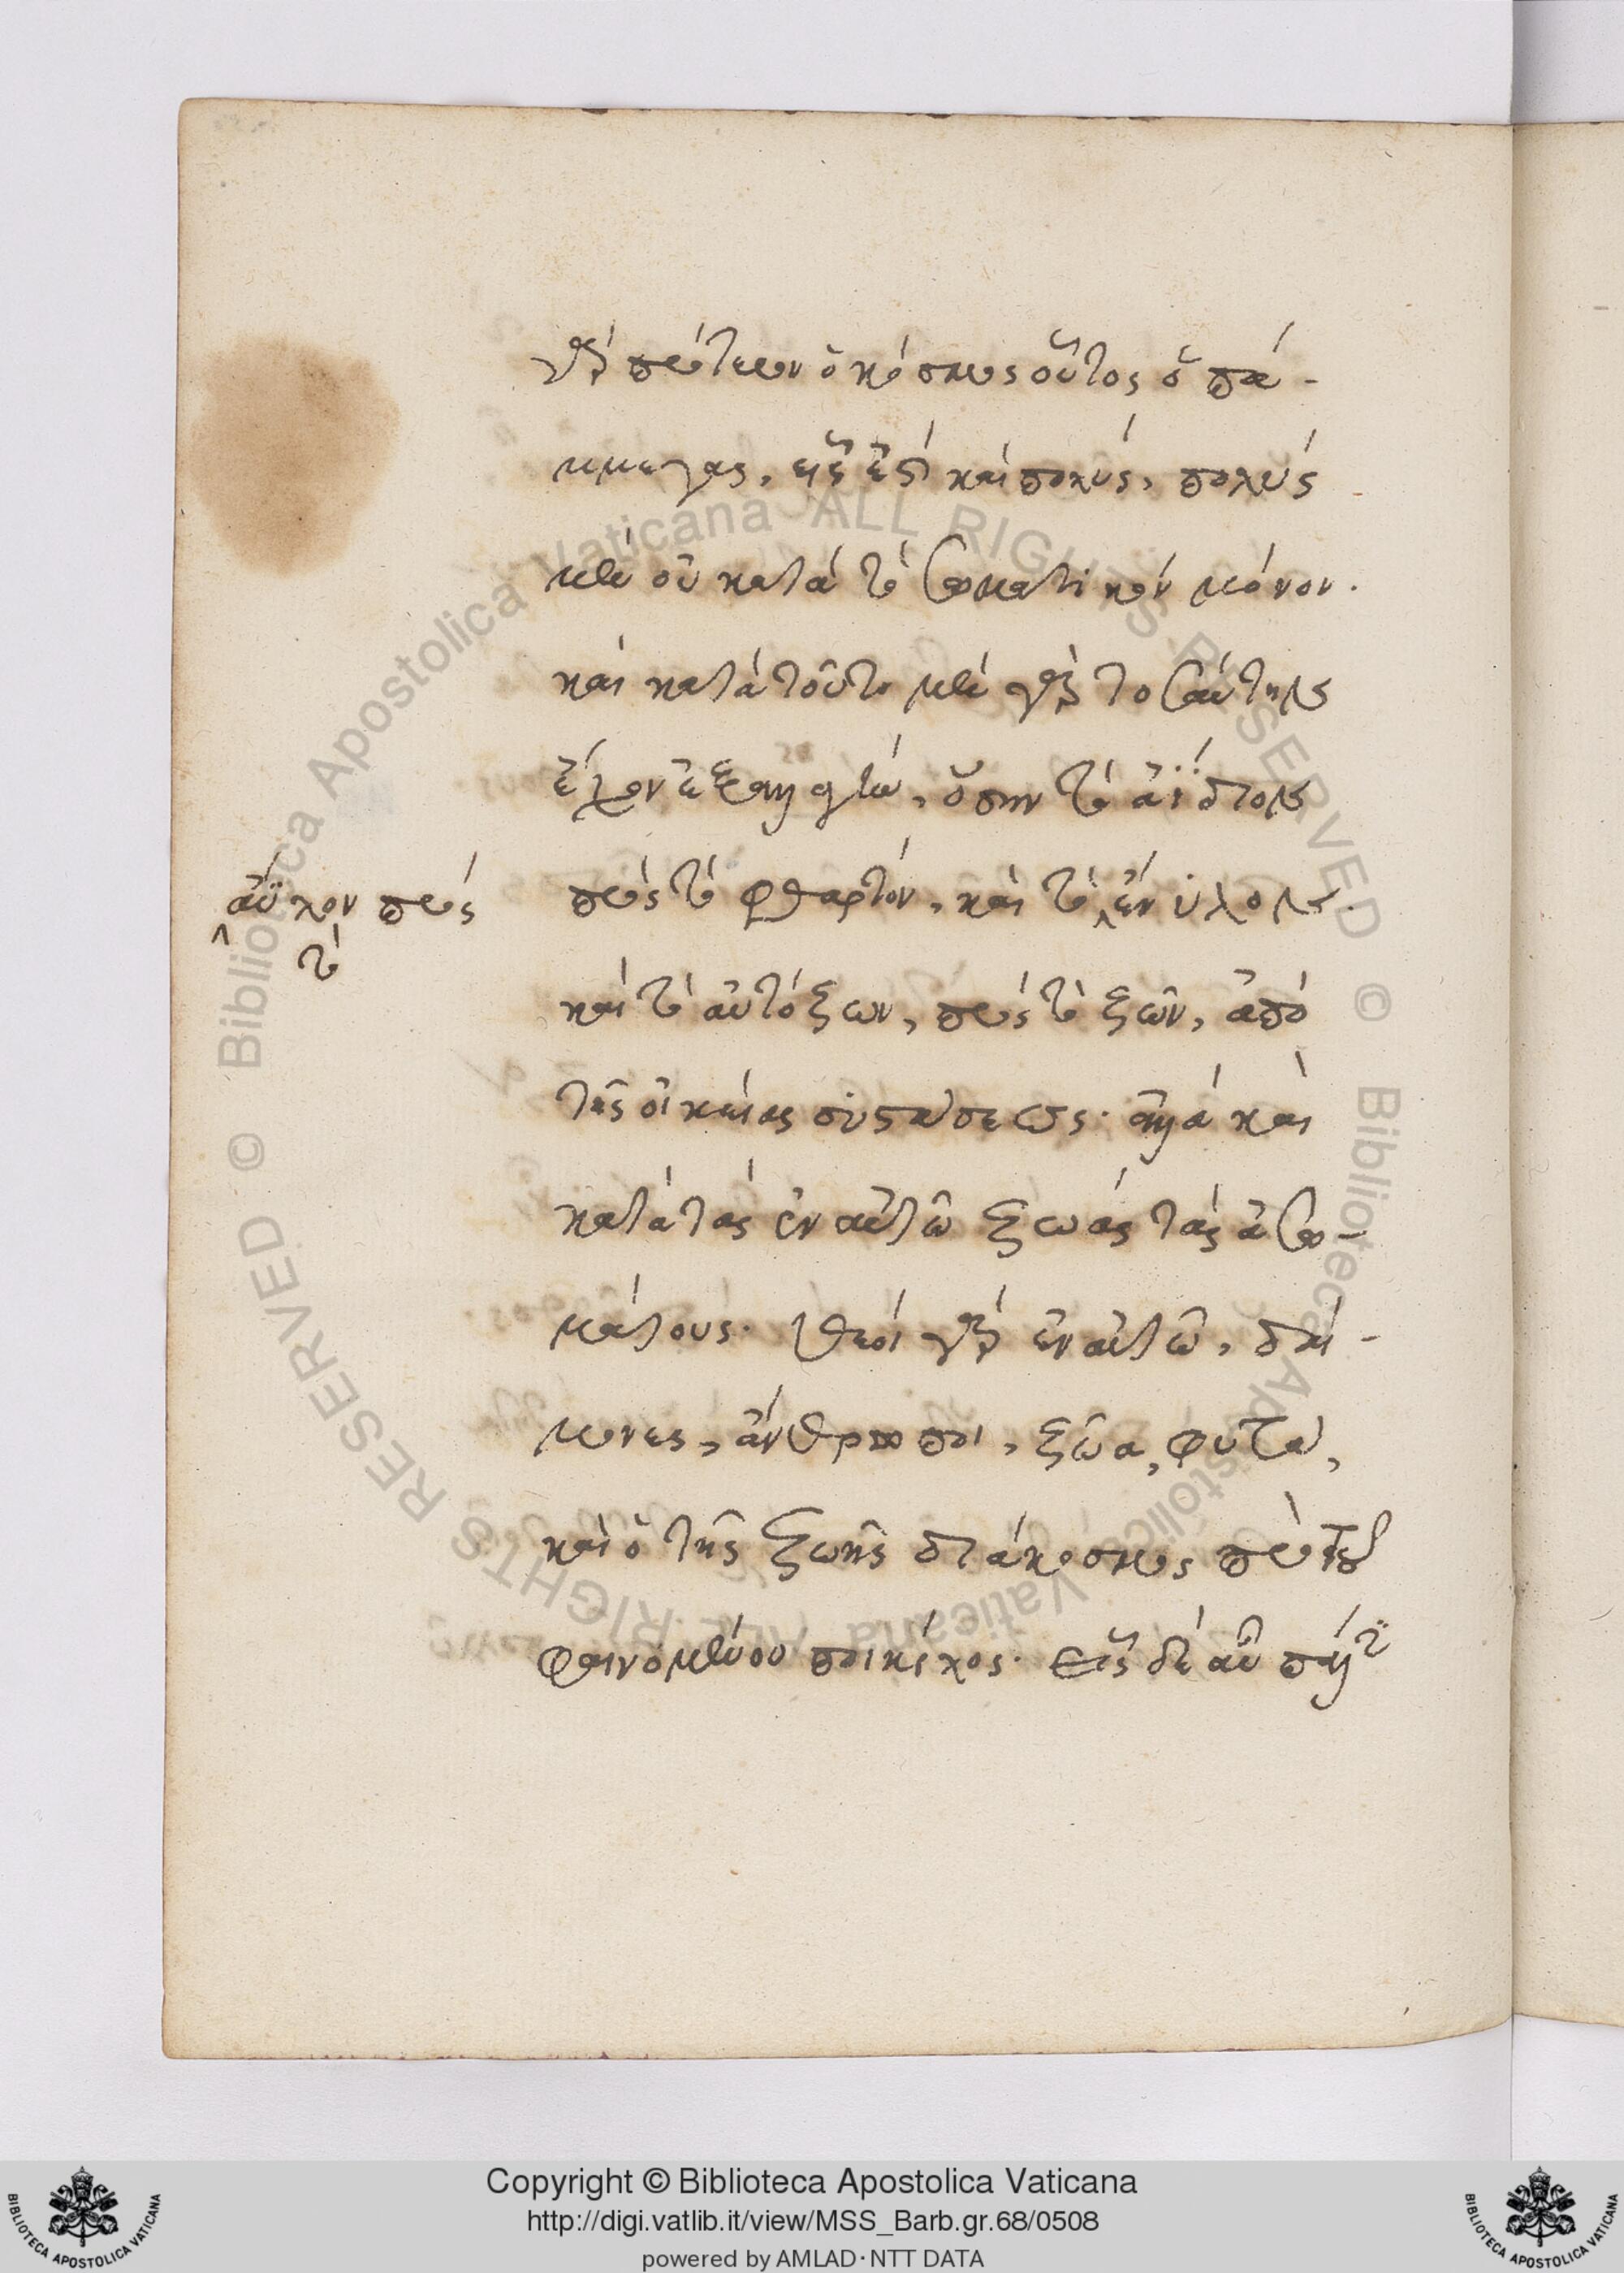 γὰρ πρότερον ὁ κόσμος οὗτος ὁ πά-
μμεγας, εἷς ἐστὶ καὶ πολύς, πολὺς
μὲν οὐ κατὰ τὸ σωματικὸν μόνον.
καὶ κατὰ τοῦτο μὲν γὰρ τοσαύτην
ἔχον ἐξαλλαγὴν, ὅσην τὸ ἀΐδιον
ἄϋλον πρὸς
τὸ
πρὸς τὸ φθαρτόν, καὶ τὸ ἔνυλον.
καὶ τὸ αὐτόζων, πρὸς τὸ ζῶν, ἀπὸ
τῆς οἰκείας συστάσεως. ἀλλὰ καὶ
κατὰ τὰς ἐν αὐτῶ ζωὰς τὰς ἀσω-
μάτους. θεοὶ γὰρ ἐν αὐτῶ, δαί-
μονες, ἄνθρωποι, ζῶα, φυτὰ,
καὶ ὁ τῆς ζωῆς διάκοσμος πρὸ τοῦ
φαινομένου ποικίλος. εἷς δὲ αὖ πάλιν
Copyright © Biblioteca Apostolica Vaticana
http://digi.vatlib.it/view/MSS_Barb.gr.68/0508
powered by AMLAD·NTT DATA
BIBLIOTECA APOSTOLICA VATICANA
BIBLIOTECA APOSTOLICA VATICANA
© Biblioteca Apostolica Vaticana ALL RIGHTS RESERVED © Biblioteca Apostolica Vaticana ALL RIGHTS RESERVED